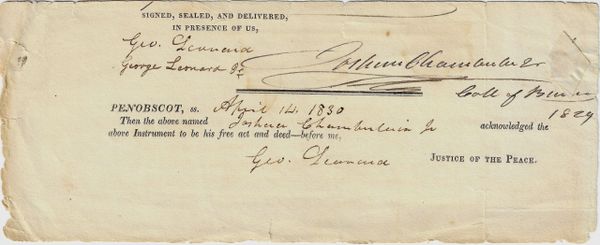 SIGNED, SEALED, AND DELIVERED,
IN PRESENCE OF US,
Geo. Leonard
George Leonard Jr
Joshua Chamberlain Jr
Coll of Brewer
1829
PENOBSCOT, ss. April 14. 1830
Then the above named Joshua Chamberlain Jr acknowledged the
above Instrument to be his free act and deed—before me,
Geo. Leonard JUSTICE OF THE PEACE.